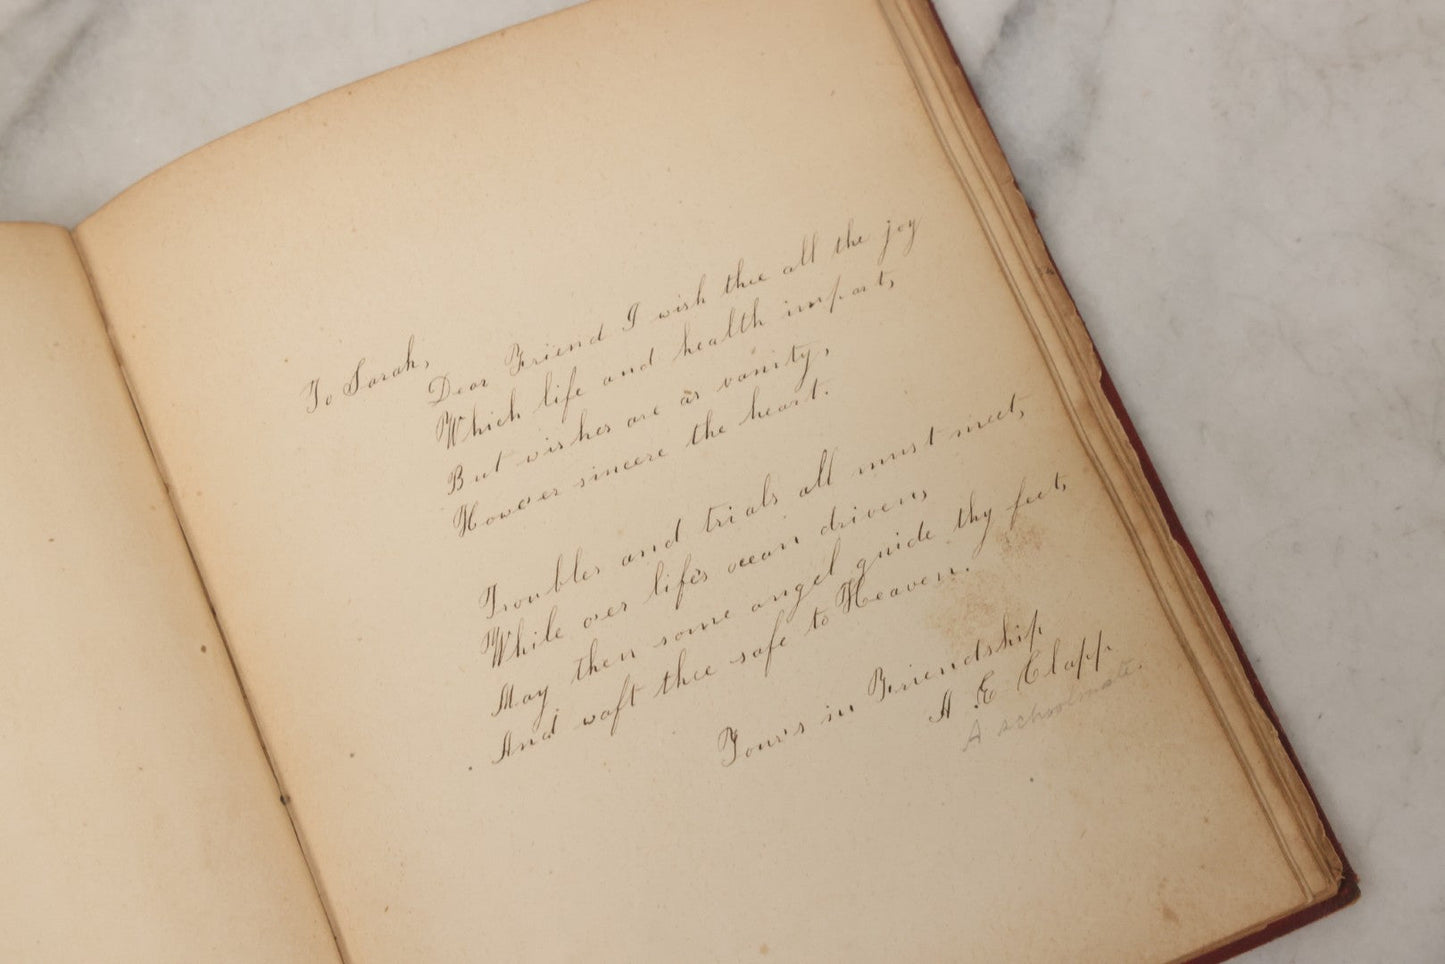 To Sarah,
Dear Friend I wish thee all the joy
Which life and health impart,
But wishes are as vanity,
However sincere the heart.
Troubles and trials all must meet,
While over life's ocean driven,
May then some angel guide thy feet,
And waft thee safe to Heaven.
Yours in Friendship
A. E. Clapp.
A schoolmate.